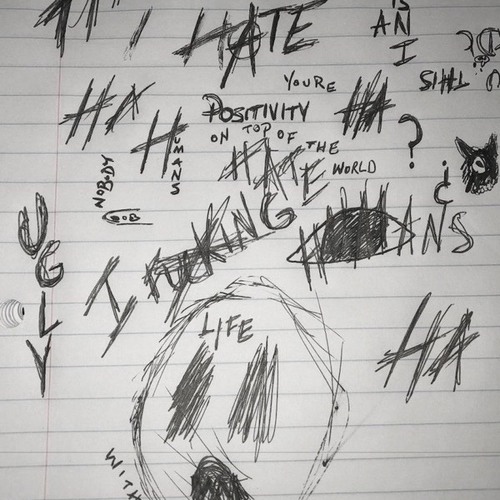 HATE
IS
AN
I
YOU'RE
THIS
HA
POSITIVITY
HA
HUMANS
ON TOP OF
THE
HATE
WORLD
?
NOBODY
¿
UGLY
I FUCKING
HUMANS
LIFE
HA
WITH